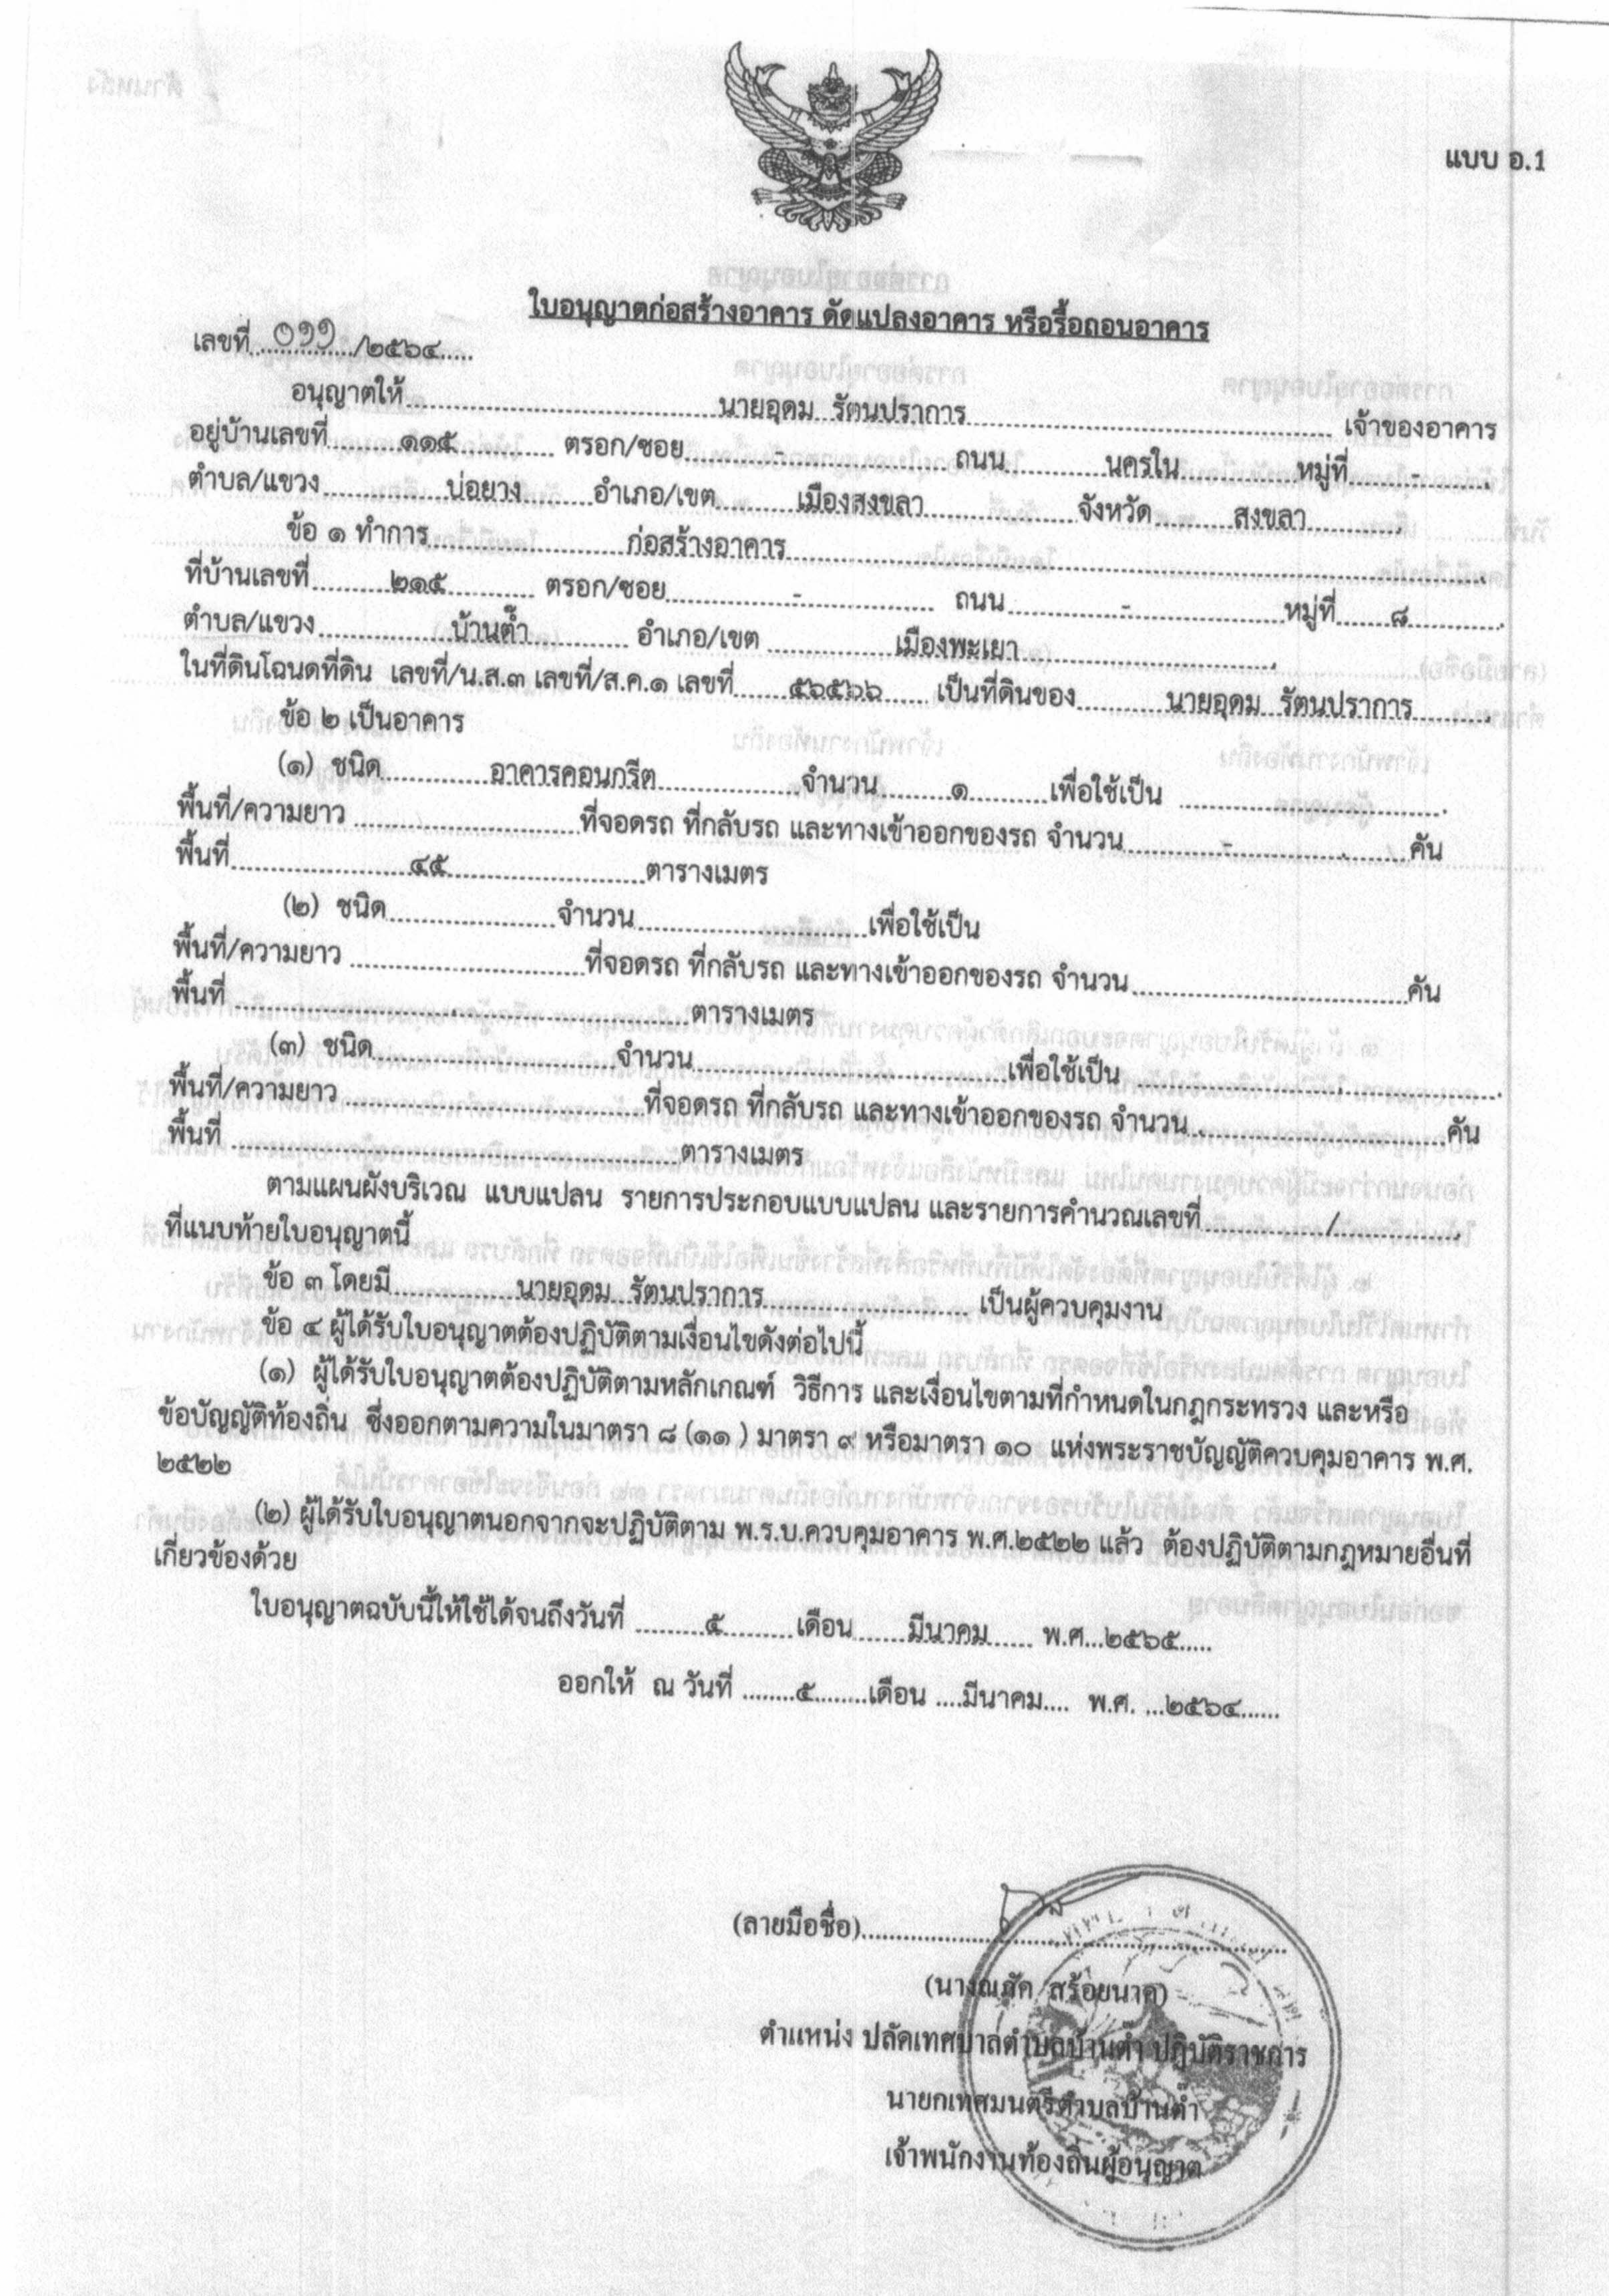 แบบ อ.1
ใบอนุญาตก่อสร้างอาคาร ดัดแปลงอาคาร หรือรื้อถอนอาคาร
เลขที่ ๐๑๑ /๒๕๖๔
อนุญาตให้ นายอุดม รัตนปราการ เจ้าของอาคาร
อยู่บ้านเลขที่ ๑๑๕ ตรอก/ซอย - ถนน นครใน หมู่ที่ -
ตำบล/แขวง บ่อยาง อำเภอ/เขต เมืองสงขลา จังหวัด สงขลา
ข้อ ๑ ทำการ ก่อสร้างอาคาร
ที่บ้านเลขที่ ๒๑๕ ตรอก/ซอย - ถนน - หมู่ที่ ๘
ตำบล/แขวง บ้านต๊ำ อำเภอ/เขต เมืองพะเยา
ในที่ดินโฉนดที่ดิน เลขที่/น.ส.๓ เลขที่/ส.ค.๑ เลขที่ ๕๖๕๖๖ เป็นที่ดินของ นายอุดม รัตนปราการ
ข้อ ๒ เป็นอาคาร
(๑) ชนิด อาคารคอนกรีต จำนวน ๑ เพื่อใช้เป็น
พื้นที่/ความยาว ที่จอดรถ ที่กลับรถ และทางเข้าออกของรถ จำนวน - คัน
พื้นที่ ๔๕ ตารางเมตร
(๒) ชนิด จำนวน เพื่อใช้เป็น
พื้นที่/ความยาว ที่จอดรถ ที่กลับรถ และทางเข้าออกของรถ จำนวน คัน
พื้นที่ ตารางเมตร
(๓) ชนิด จำนวน เพื่อใช้เป็น
พื้นที่/ความยาว ที่จอดรถ ที่กลับรถ และทางเข้าออกของรถ จำนวน คัน
พื้นที่ ตารางเมตร
ตามแผนผังบริเวณ แบบแปลน รายการประกอบแบบแปลน และรายการคำนวณเลขที่ /
ที่แนบท้ายใบอนุญาตนี้
ข้อ ๓ โดยมี นายอุดม รัตนปราการ เป็นผู้ควบคุมงาน
ข้อ ๔ ผู้ได้รับใบอนุญาตต้องปฏิบัติตามเงื่อนไขดังต่อไปนี้
(๑) ผู้ได้รับใบอนุญาตต้องปฏิบัติตามหลักเกณฑ์ วิธีการ และเงื่อนไขตามที่กำหนดในกฎกระทรวง และหรือ
ข้อบัญญัติท้องถิ่น ซึ่งออกตามความในมาตรา ๘ (๑๑ ) มาตรา ๙ หรือมาตรา ๑๐ แห่งพระราชบัญญัติควบคุมอาคาร พ.ศ.
๒๕๒๒
(๒) ผู้ได้รับใบอนุญาตนอกจากจะปฏิบัติตาม พ.ร.บ.ควบคุมอาคาร พ.ศ.๒๕๒๒ แล้ว ต้องปฏิบัติตามกฎหมายอื่นที่
เกี่ยวข้องด้วย
ใบอนุญาตฉบับนี้ให้ใช้ได้จนถึงวันที่ ๕ เดือน มีนาคม พ.ศ. ๒๕๖๕
ออกให้ ณ วันที่ ๕ เดือน มีนาคม พ.ศ. ๒๕๖๔
(ลายมือชื่อ)
(นางณภัค สร้อยนาค)
ตำแหน่ง ปลัดเทศบาลตำบลบ้านต๊ำ ปฏิบัติราชการ
นายกเทศมนตรีตำบลบ้านต๊ำ
เจ้าพนักงานท้องถิ่นผู้อนุญาต